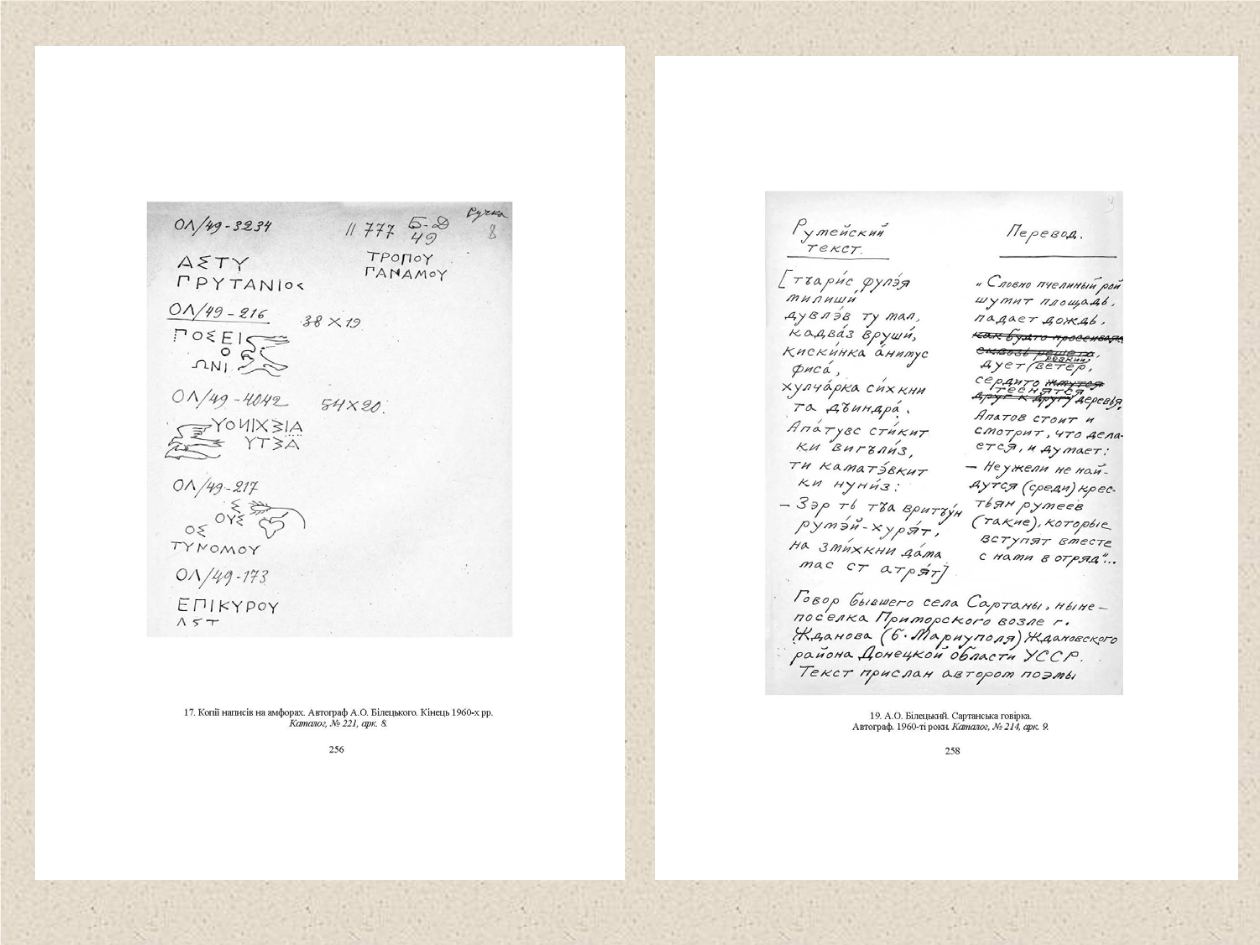 Ручка
ОЛ/49-3234
11 777 Б-Д
49
8
ΑΣΤΥ
ΓΡΥΤΑΝΙΟΣ
ΤΡΟΠΟΥ
ΓΑΝΑΜΟΥ
ОЛ/49-216
38 X 19.
ΠΟΣΕΙ
Ο
ΩΝΙ
ОЛ/49-4042
54X20.
ΥΟΝΙΧΞΙΑ
ΥΤΞΑ
ОЛ/49-217
Σ
ΟΥΣ
ΟΣ
ΤΥΝΟΜΟΥ
ОЛ/49-173
ΕΠΙΚΥΡΟΥ
17. Копії написів на амфорах. Автограф А.О. Білецького. Кінець 1960-х рр.
Каталог, № 221, арк. 8.
256
9
Румейский
текст.
[тъари́с фулэ́я
милиши́
дувлэ́в ту мал,
кадва́з вруши́,
кискинка а́нимус
фиса́,
хулча́рка си́хкни
та дъиндра́.
Апа́тувс сти́кит
ки вигълі́з,
ти камата́вкит
ки нуни́з:
– Зэр ть тъа вритъу́н
румэ́й-хуря́т,
на зми́хкни да́ма
мас ст атря́т]
Перевод.
„Словно пчелиный рой
шумит площадь,
падает дождь,
как будто просеивала
сквозь решета,
дует резкий ветер,
сердито жмутся
теснятся
друг к другу деревья.
Апатов стоит и
смотрит, что дела-
ется, и думает:
– Неужели не най-
дутся (среди) крес-
тьян румеев
(такие), которые
вступят вместе
с нами в отряд"...
Говор бывшего села Сартаны, ныне –
поселка Приморского возле г.
Жданова (б. Мариуполя) Ждановского
района Донецкой области УССР.
Текст прислан автором поэмы
19. А.О. Білецький. Сартанська говірка.
Автограф. 1960-ті роки. Каталог, № 214, арк. 9.
258